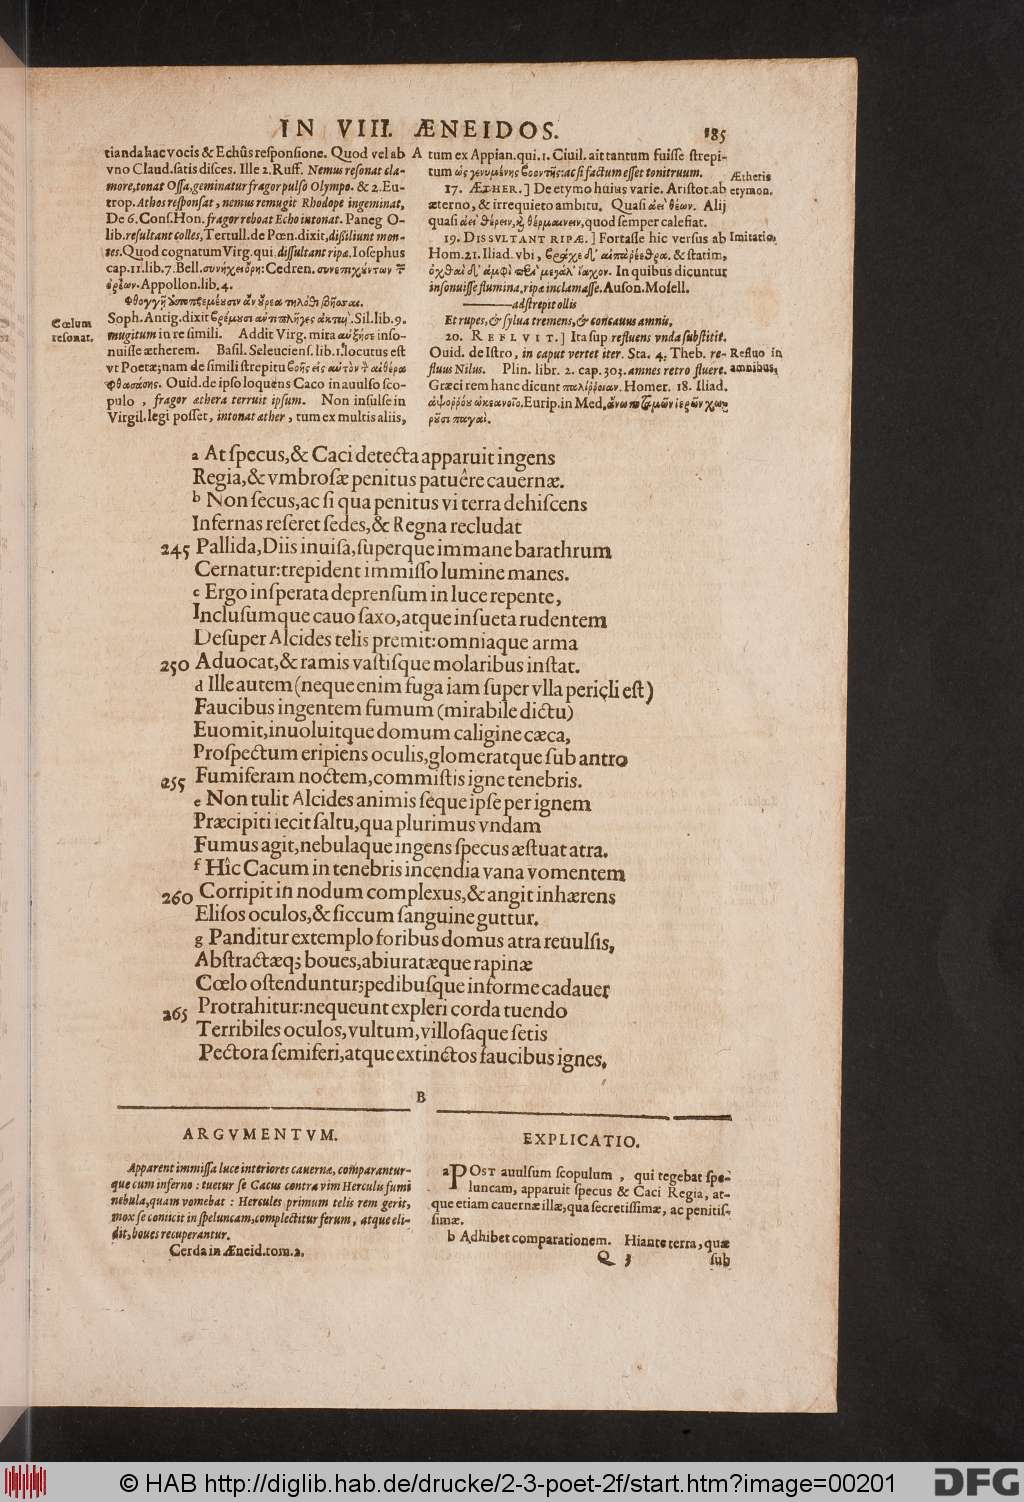 IN VIII. ÆNEIDOS.
185
tianda hac vocis & Echûs responsione. Quod vel ab
vno Claud. satis disces. Ille 2. Ruff. Nemus resonat cla-
more, tonat Ossa, geminatur fragor pulso Olympo. & 2. Eu-
trop. Athos responsat, nemus remugit Rhodope ingeminat,
De 6. Cons. Hon. fragor reboat Echo intonat. Paneg O-
lib. resultant colles, Tertull. de Pœn. dixit, dissiliunt mon-
tes. Quod cognatum Virg. qui, dissultant ripæ. Iosephus
cap. 11. lib. 7. Bell. συνήχει ὄρη: Cedren. συνεπιχύντων
ὀρέων. Appollon. lib. 4.
Soph. Antig. dixit Sil. lib. 9.
mugitum in re simili. Addit Virg. mira αὐξήσει inso-
nuisse ætherem. Basil. Seleuciens. lib. 1. locutus est
vt Poetæ; nam de simili strepitu βοῆς εἰς αὐτὸν αἰθέρα
φθασάσης. Ouid. de ipso loquens Caco in auulso sco-
pulo, fragor æthera terruit ipsum. Non insulse in
Virgil. legi posset, intonat æther, tum ex multis aliis,
Cœlum
resonat.
A
tum ex Appian. qui. 1. Ciuil. ait tantum fuisse strepi-
tum ὡς γενομένης βροντῆς: ac si factum esset tonitruum.
17. ÆTHER.] De etymo huius varie. Aristot. ab
æterno, & irrequieto ambitu. Quasi ἀεὶ θέων. Alij
quasi ἀεὶ θέρειν, ϗ θέρμαινειν, quod semper calefiat.
19. DISSVLTANT RIPÆ.] Fortasse hic versus ab
Hom. 21. Iliad. vbi, βράχε δ' αἰπὰ ῥέεθρα. & statim,
ὄχθαι δ' ἀμφὶ περὶ μεγάλ' ἴαχον. In quibus dicuntur
insonuisse flumina, ripæ inclamasse. Auson. Mosell.
———adstrepit ollis
Et rupes, & sylua tremens, & concauus amnis,
20. REFLVIT.] Ita sup refluens vnda substitit.
Ouid. de Istro, in caput vertet iter. Sta. 4. Theb. re-
fluus Nilus. Plin. libr. 2. cap. 303. amnes retro fluere.
Græci rem hanc dicunt παλίῤῥοιαν. Homer. 18. Iliad.
ἀψορρόου ὠκεανοῖο. Eurip. in Med. ἄνω ποταμῶν ἱερῶν χωρ
ροῦσι παγαί.
Ætheris
etymon.
Imitatio.
Refluo in
amnibus.
a At specus, & Caci detecta apparuit ingens
Regia, & vmbrosæ penitus patuêre cauernæ.
b Non secus, ac si qua penitus vi terra dehiscens
Infernas referet sedes, & Regna recludat
245 Pallida, Diis inuisa, superque immane barathrum
Cernatur: trepident immisso lumine manes.
c Ergo insperata deprensum in luce repente,
Inclusumque cauo saxo, atque insueta rudentem
Desuper Alcides telis premit: omniaque arma
250 Aduocat, & ramis vastisque molaribus instat.
d Ille autem (neque enim fuga iam super vlla pericli est)
Faucibus ingentem fumum (mirabile dictu)
Euomit, inuoluitque domum caligine cæca,
Prospectum eripiens oculis, glomeratque sub antro
255 Fumiferam noctem, commistis igne tenebris.
e Non tulit Alcides animis seque ipse per ignem
Præcipiti iecit saltu, qua plurimus vndam
Fumus agit, nebulaque ingens specus æstuat atra.
f Hîc Cacum in tenebris incendia vana vomentem
260 Corripit in nodum complexus, & angit inhærens
Elisos oculos, & siccum sanguine guttur.
g Panditur extemplo foribus domus atra reuulsis,
Abstractæq; boues, abiuratæque rapinæ
Cœlo ostenduntur; pedibusque informe cadauer
265 Protrahitur: nequeunt expleri corda tuendo
Terribiles oculos, vultum, villosaque setis
Pectora semiferi, atque extinctos faucibus ignes.
B
ARGVMENTVM.
Apparent immissa luce interiores cauernæ, comparantur-
que cum inferno: tuetur se Cacus contra vim Herculis fumi
nebula, quam vomebat: Hercules primum telis rem gerit,
mox se conicit in speluncam, complectitur ferum, atque eli-
dit, boues recuperantur.
Cerda in Æneid. tom. 2.
EXPLICATIO.
a POST auulsum scopulum, qui tegebat spe-
luncam, apparuit specus & Caci Regia, at-
que etiam cauernæ illæ, qua secretissimæ, ac penitis-
simæ.
b Adhibet comparationem. Hiante terra, quæ
Q 3
sub
© HAB http://diglib.hab.de/drucke/2-3-poet-2f/start.htm?image=00201
DFG